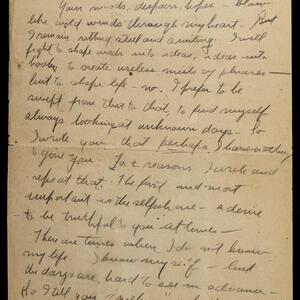 Your winds, despairs, hopes - blow
like wild winds through my heart - But
I remain sitting still and waiting. I will
fight to shape words into ideas, ideas into
books, to create useless units of phrases -
but to shape life - no. I prefer to be
swept from this to that, to find myself
always looking at unknown days - So
I wrote you that perhaps, I have nothing
to give you. For 2 reasons I wrote and
repeat that. The first and most
important is the selfish one - a desire
to be truthful to you at times -
There are times when I do not know
my life I know myself - but
the days are hard to see in advance -
So I tell you